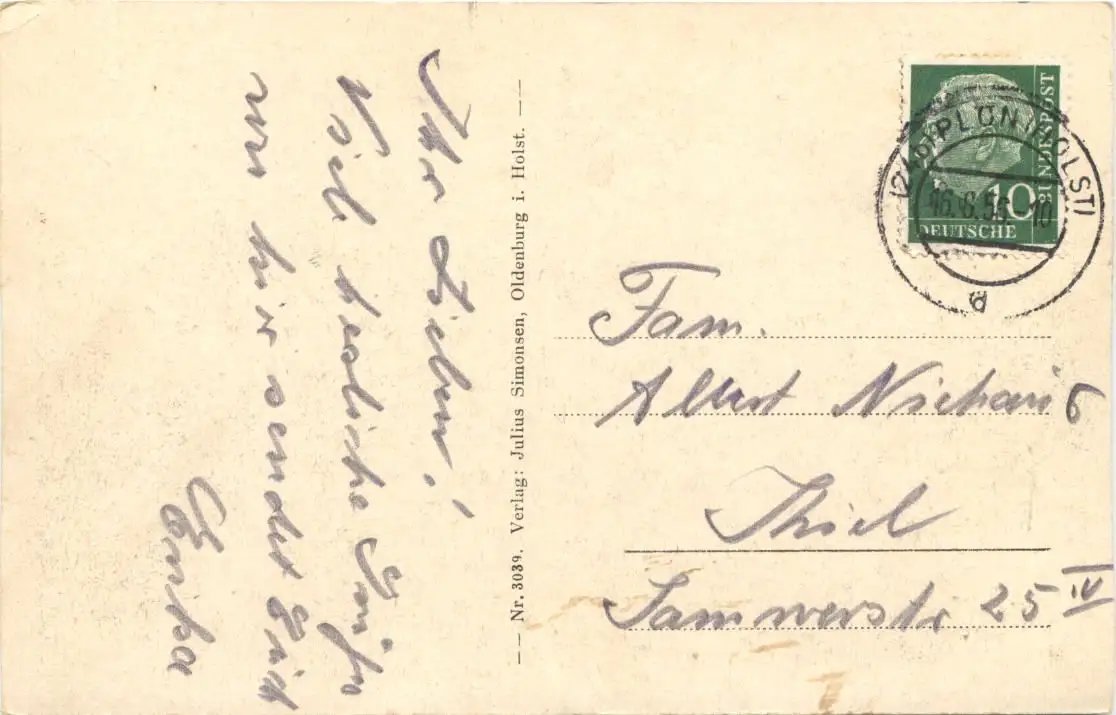 Ihr Lieben!
Viele herzliche Grüße
von hier sendet Euch
Erika
Nr. 3039. Verlag: Julius Simonsen, Oldenburg i. Holst.
DEUTSCHE
BUNDESPOST
10
PLÖN (HOLST)
16.6.56. 10
a
Fam.
Albert
Kiel
25 IV